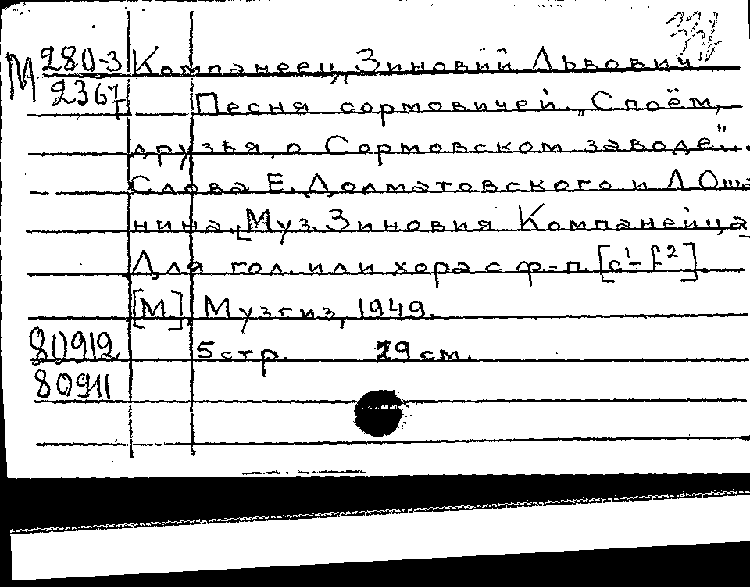 М 280-3 Компанеец, Зиновий Львович
2367 Песня сормовичей. "Споём,
друзья, о Сормовском заводе"...
Слова Е. Долматовского и Л. Оша
нина. [Муз. Зиновия Компанейца
Для гол. или хора с ф-п. [c¹-f²].
[М], Музгиз, 1949.
80912 5 стр. 29 см.
80911